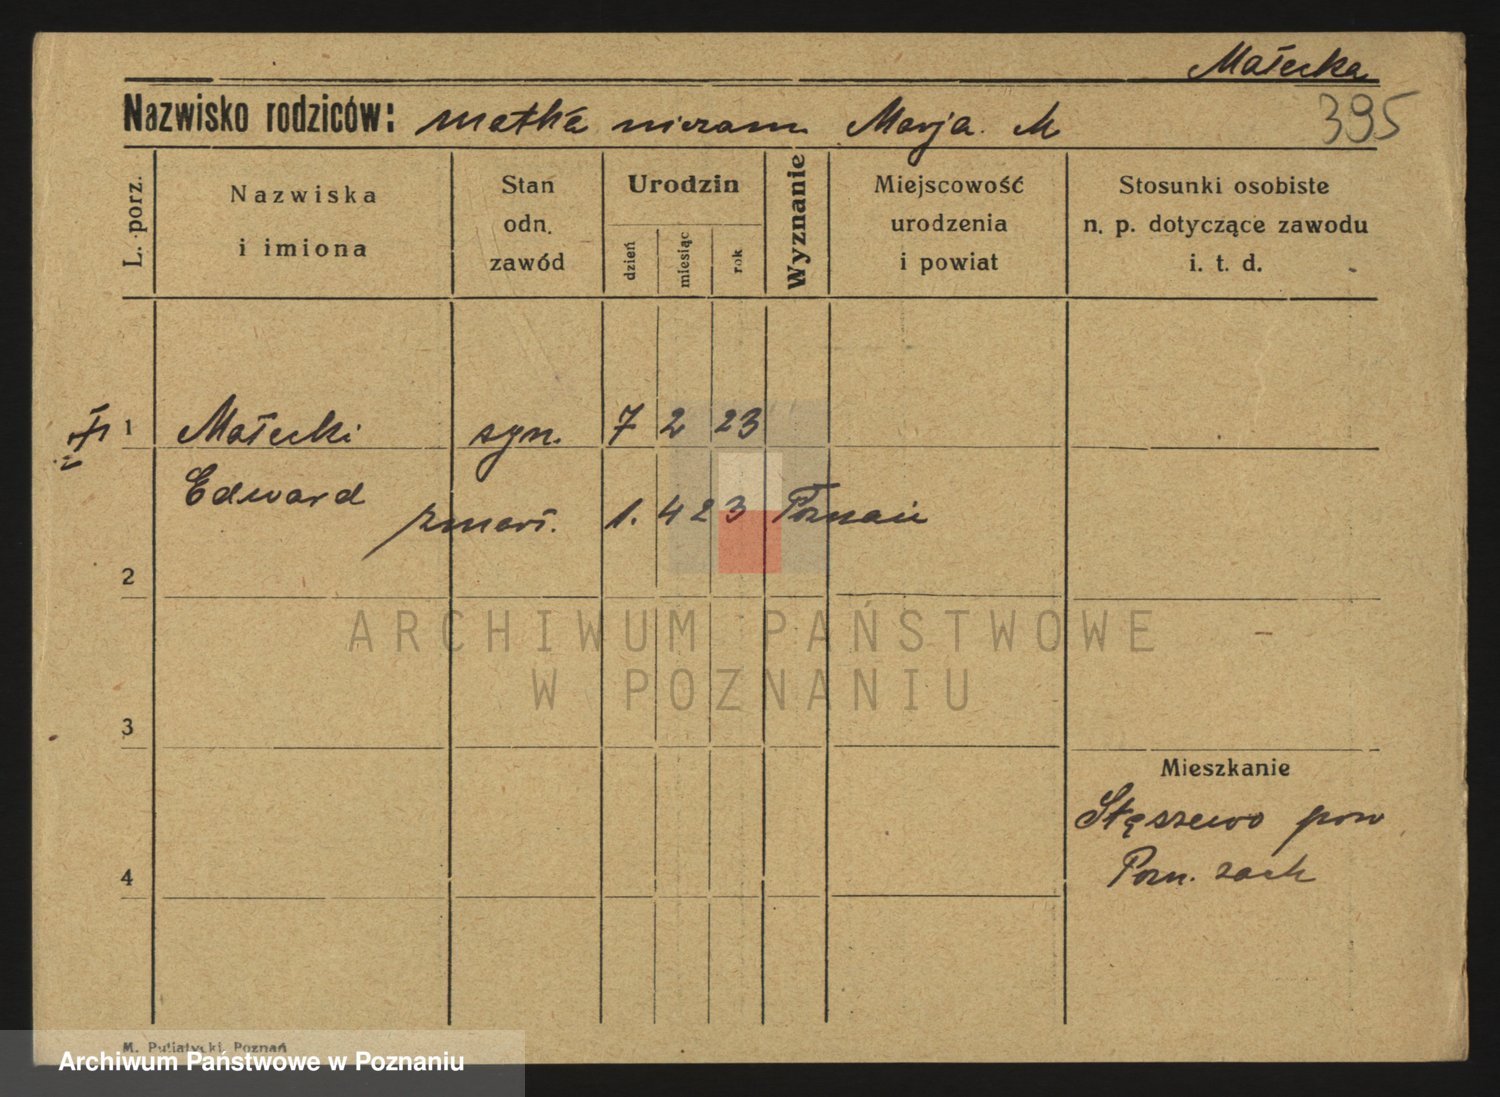 Małecka
395
Nazwisko rodziców: matka niezam Marja. M
L. porz.
Nazwiska
i imiona
Stan
odn.
zawód
Urodzin
dzień
miesiąc
rok
Wyznanie
Miejscowość
urodzenia
i powiat
Stosunki osobiste
n. p. dotyczące zawodu
i. t. d.
1 Małecki syn. 7 2 23
Edward
zmarł. 1. 4 23 Poznań
2
ARCHIWUM PAŃSTWOWE
W POZNANIU
3
Mieszkanie
Stęszewo pow
Pozn. zach
4
M. Putiatycki, Poznań
Archiwum Państwowe w Poznaniu